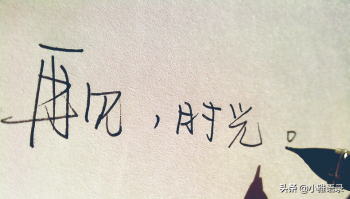 再见，时光。
头条@小雅语录